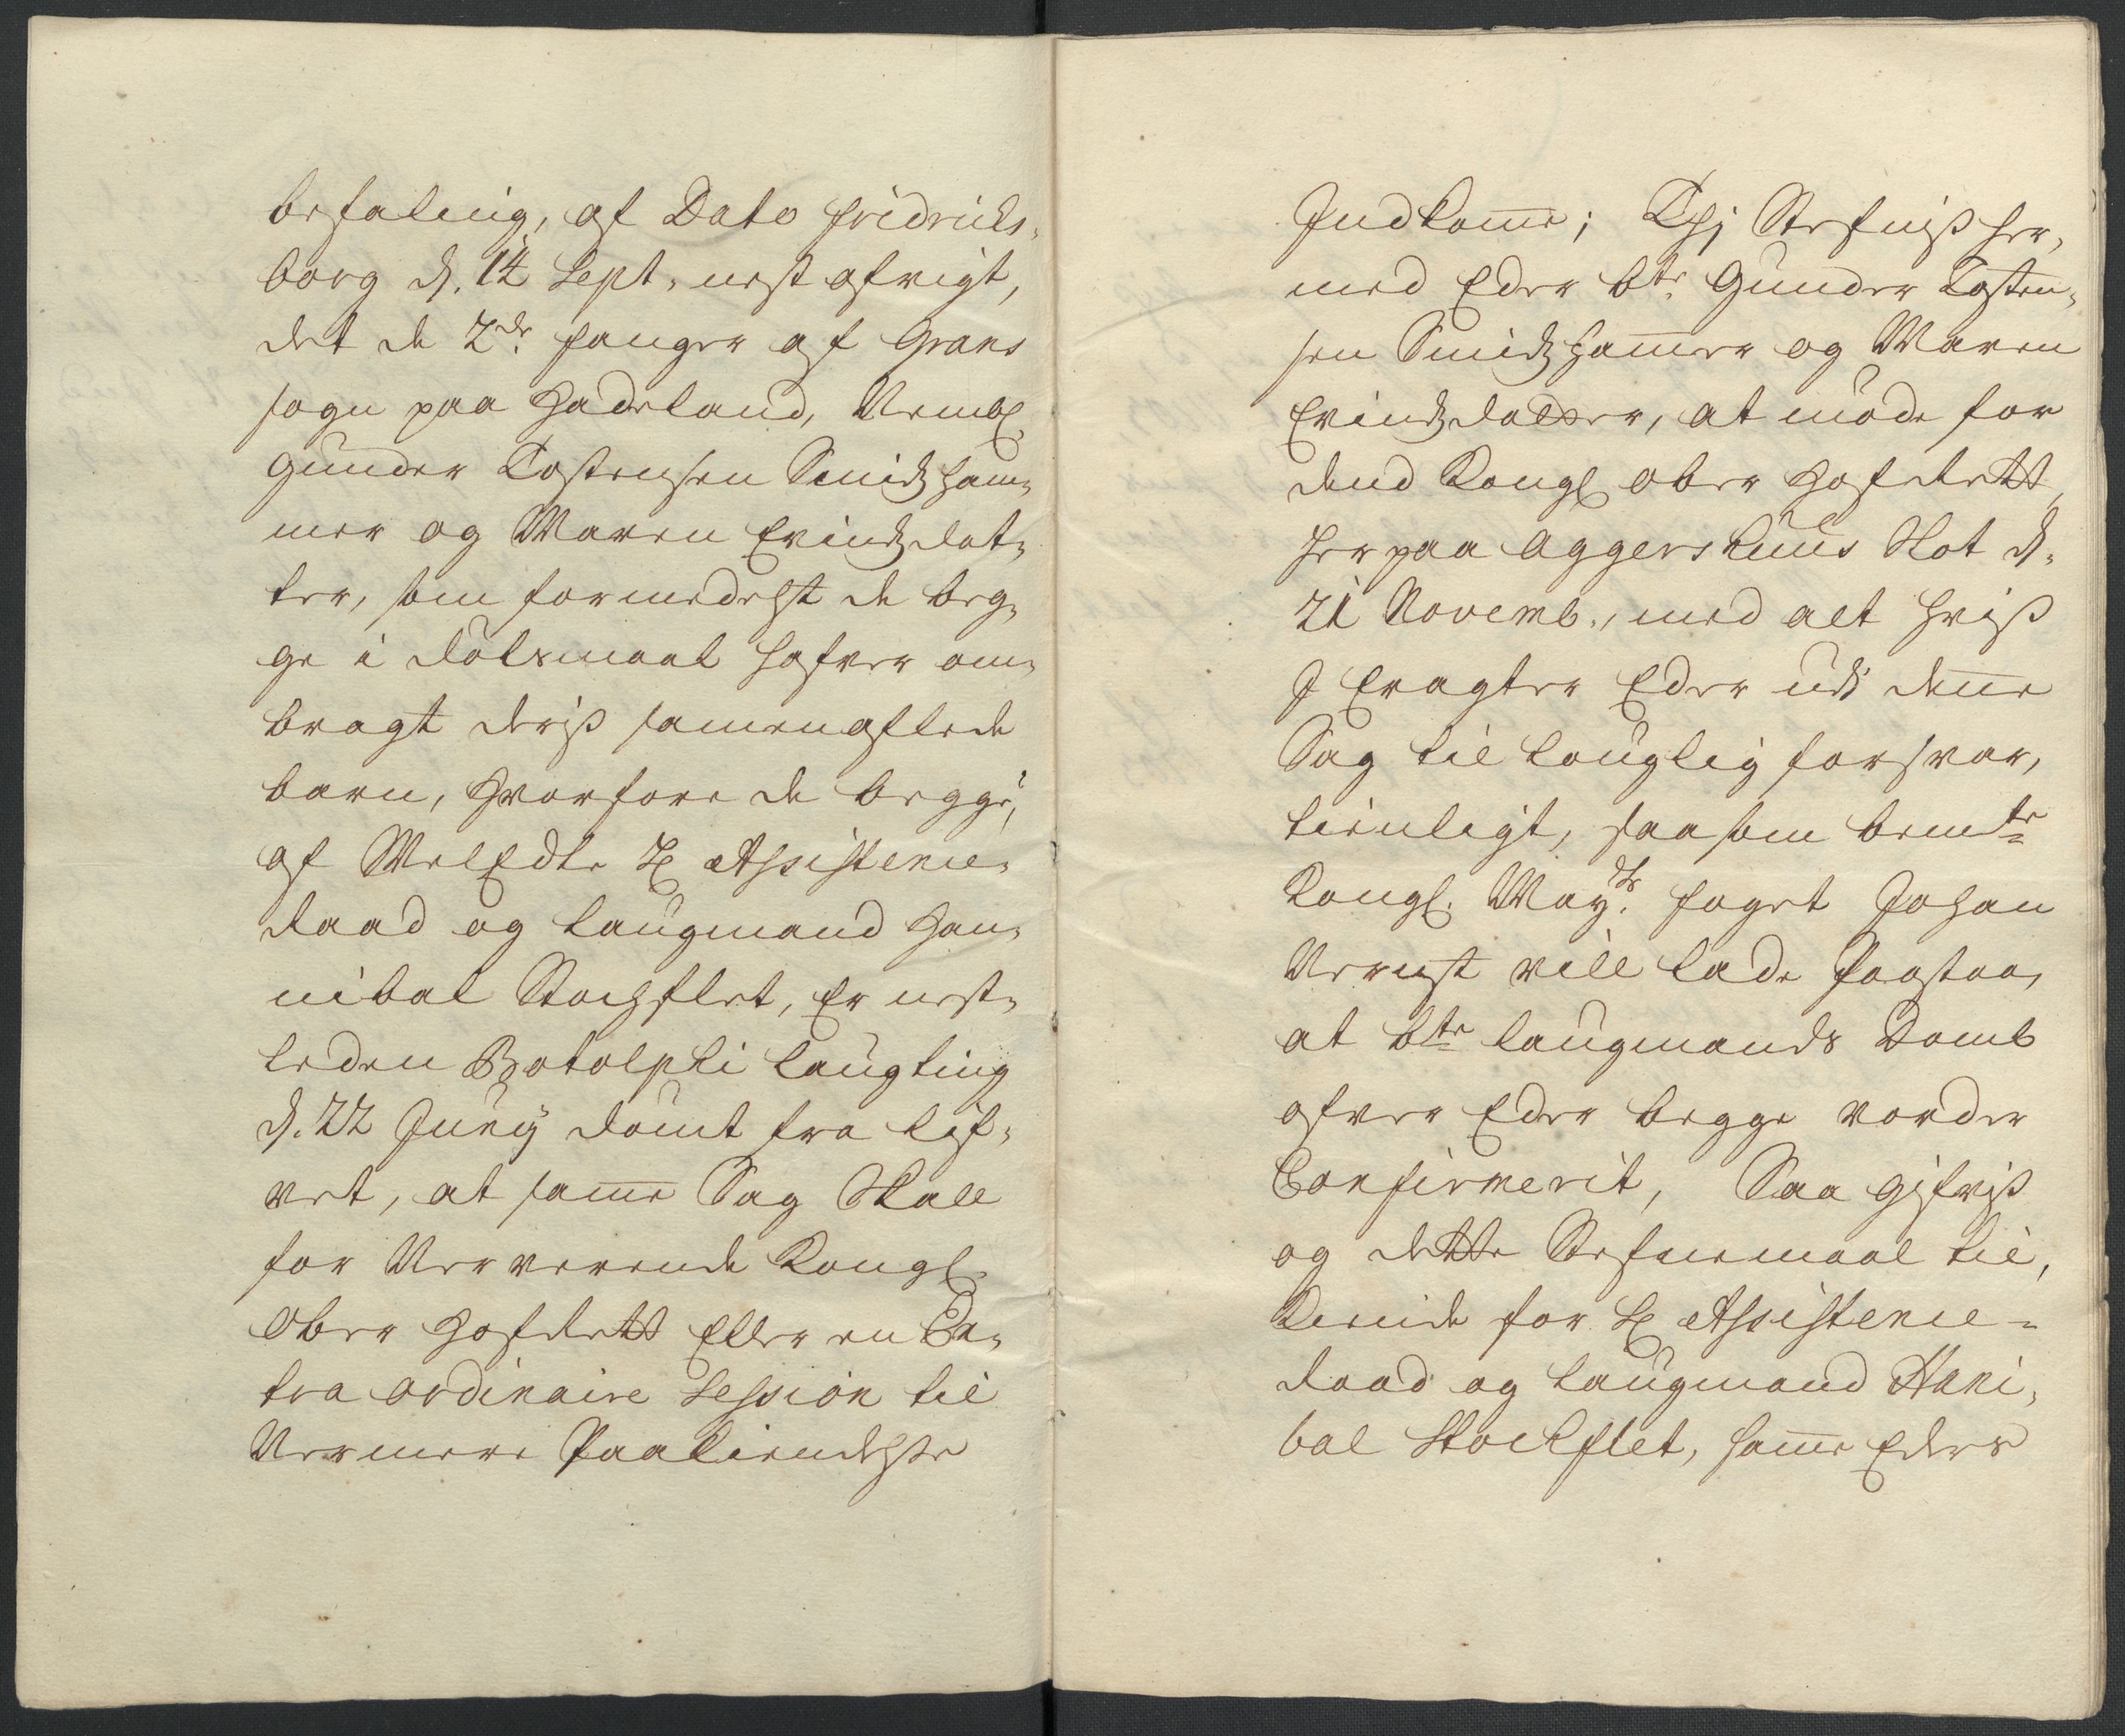 befaling, af Dato Fridrichs,
borg d. 14 Sept. nest afvigt,
det de 2de fanger af Grans
sogn paa Hadeland, Nembl.
Gunder Tostensen Smidsham,
mer og Maren Evindsdat,
ter, som formedelst de beg,
ge i dølsmaal hafver om,
bragt deris sammenaflede
barn, hvorfore de begge,
af WelEdle Hr Assistence,
raad og Laugmand Han,
nibal Stochflet, Er nest,
leden Botolphi Laugting
d. 22 Junij dømt fra Lif,
vet, at samme Sag Skall
for Nerverende Kongl.
Ober Hof Rett Eller en Ex,
tra ordinaire Session til
Nermere Paakiendelse
Indkomme; Thj Stefnis her,
med Eder bte Gunder Tosten,
sen Smidshammer og Maren
Evindsdatter, at møde for
dend Kongl Ober Hof Rett,
her paa Aggershuus Slot d.
21 Novemb., med alt hvis
I Eragter Eder udj denne
Sag til Louglig forsvar,
tienligt, saasom bemte
Kongl. Mayts foget Johan
Vernst vill lade Paastaa,
at bte Laugmands Domb
ofver Eder begge vorder
Confirmerit, Saa gifvis
og dette Stefnemaal til,
kiende for Hr Assistence=
Raad og Laugmand Hani,
bal Stockflet, samme Eders